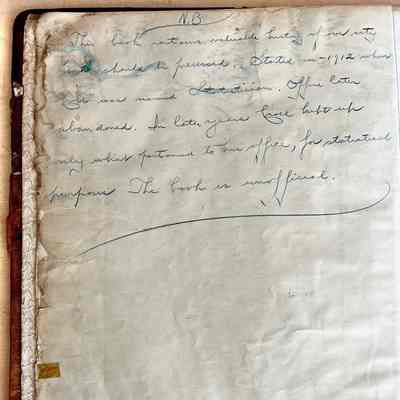 N.B.
This book contains valuable history of our city
and should be preserved. Started in 1912 when
was named Statistician. Office later
abandoned. In late years have kept up
only what pertained to our office, for statistical
purposes The book is unofficial.